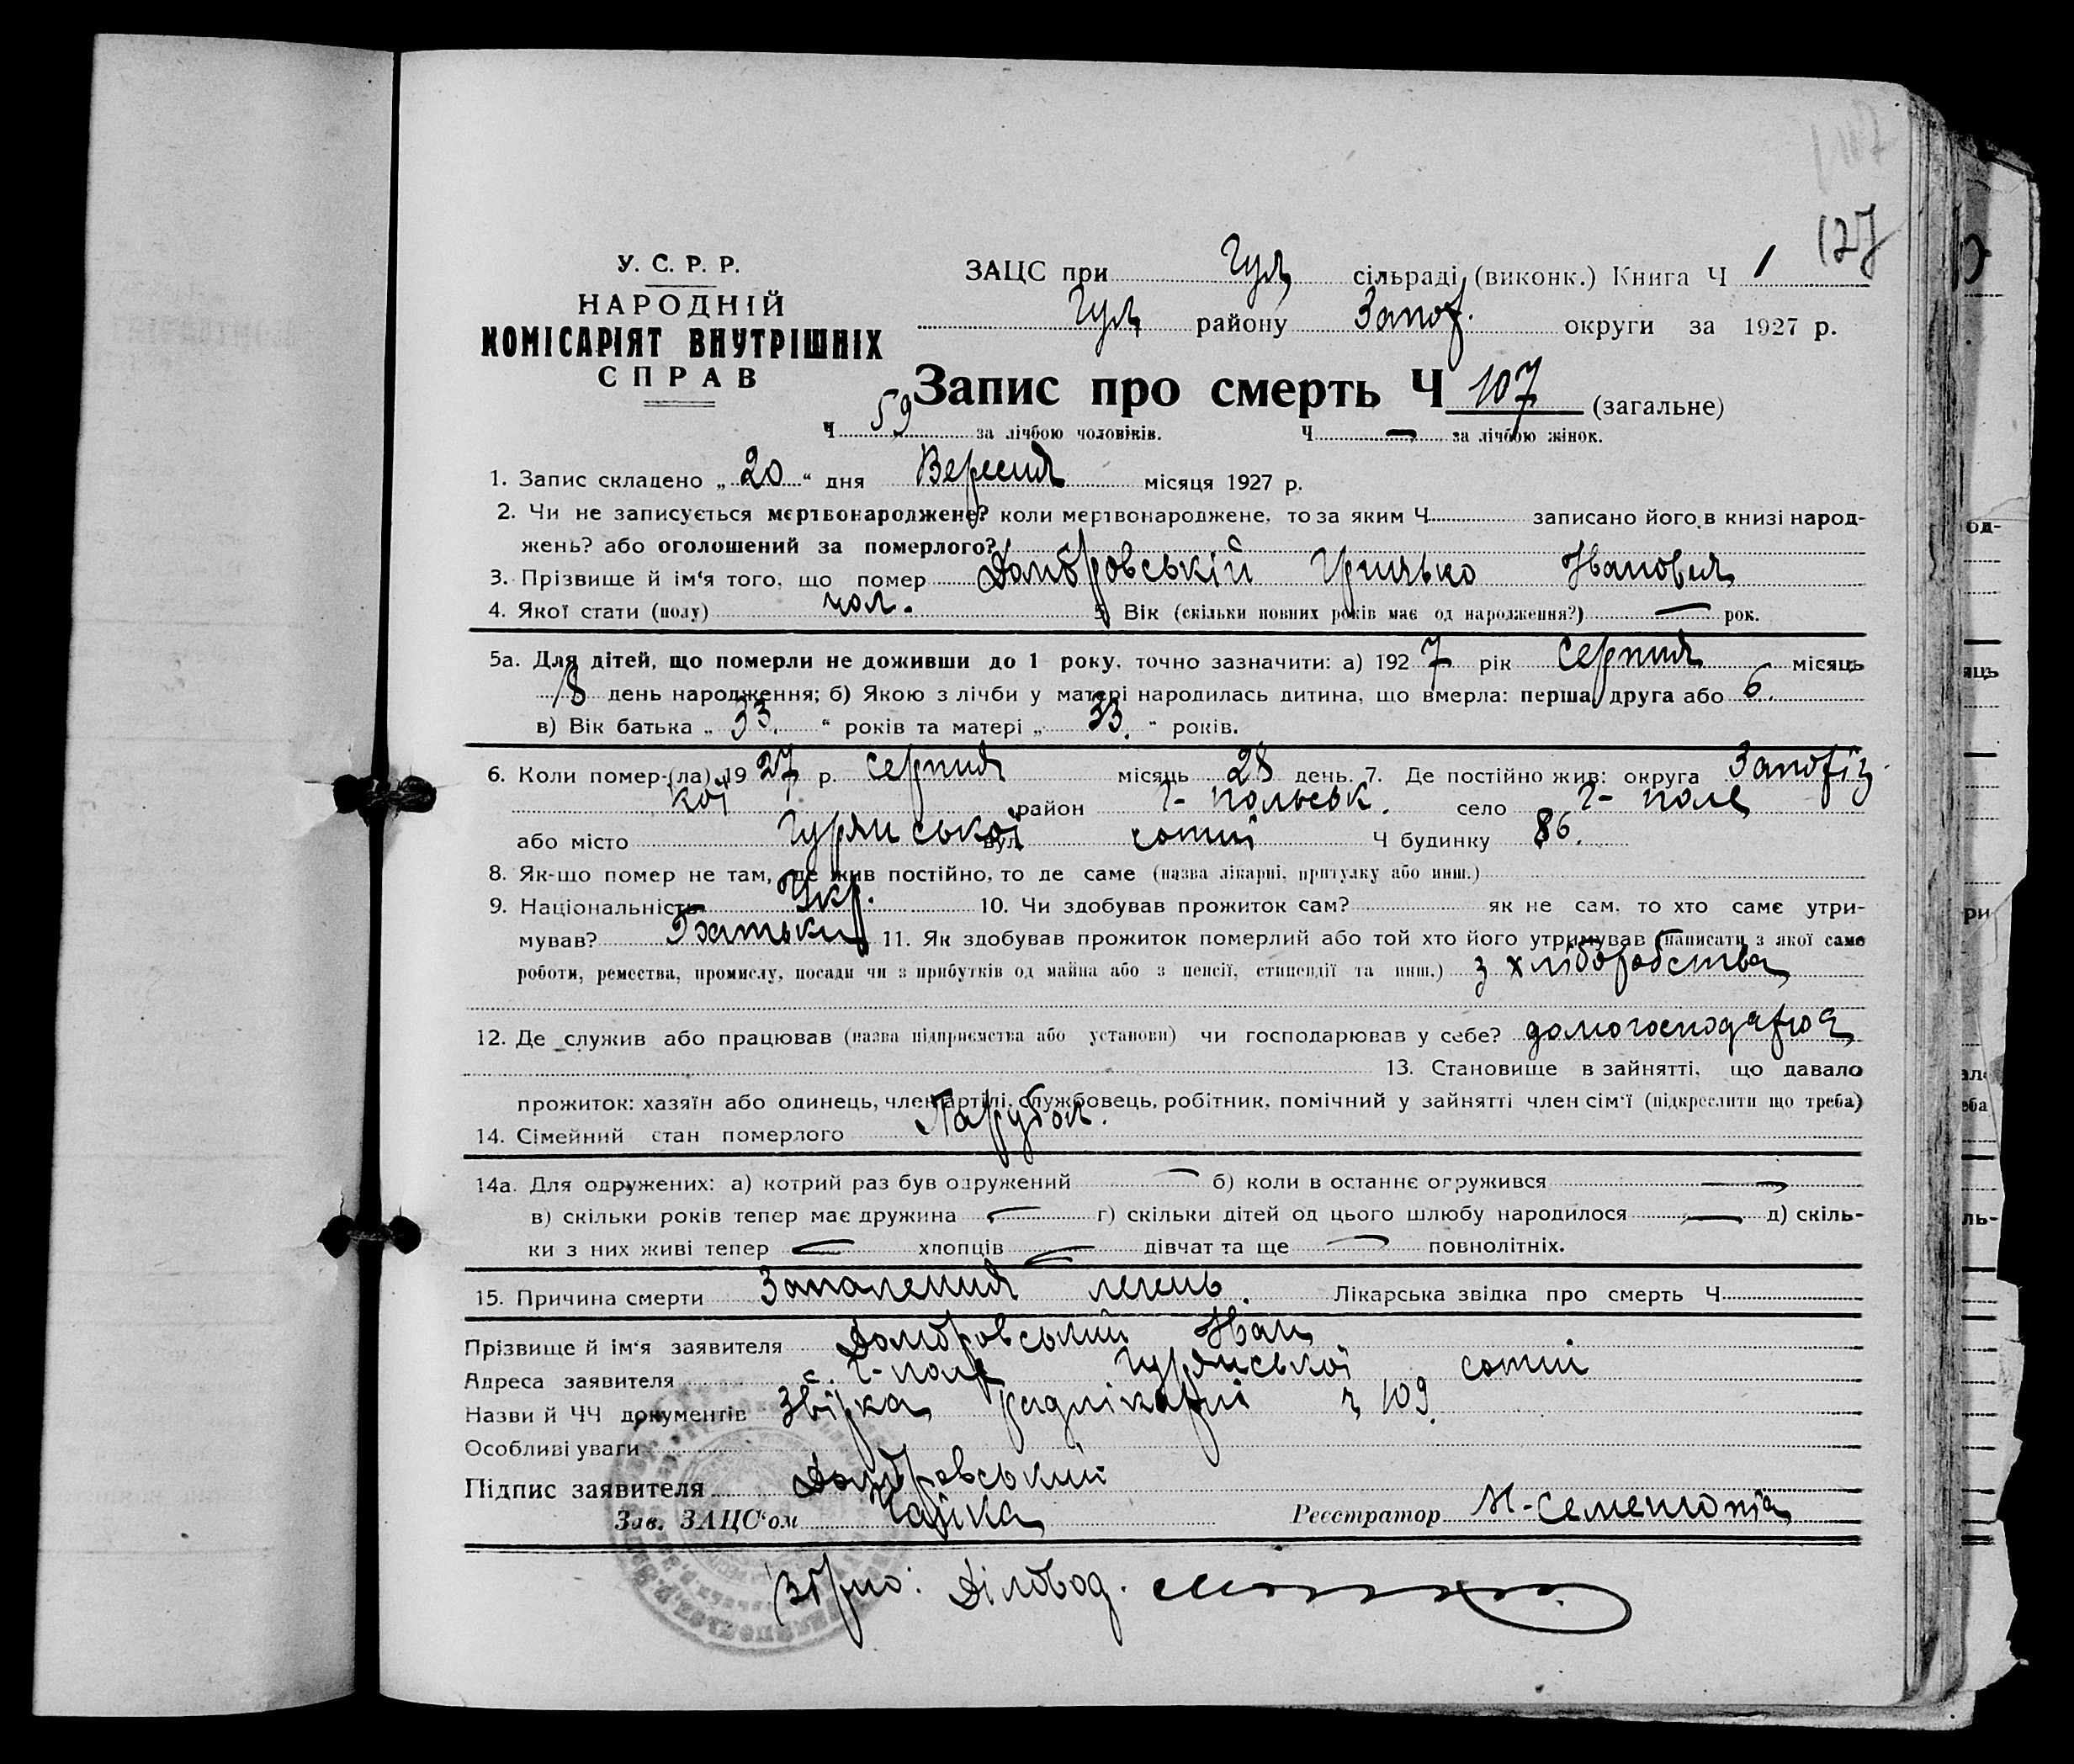 127
У. С. Р. Р.
НАРОДНІЙ
КОМІСАРІЯТ ВНУТРІШНІХ
СПРАВ
ЗАЦС при Гул сільраді (виконк.) Книга Ч 1
Гул району Запор. округи за 1927 р.
Запис про смерть Ч 107 (загальне)
Ч 59 за лічбою чоловіків. Ч — за лічбою жінок.
1. Запис складено „ 20 “ дня Вересня місяця 1927 р.
2. Чи не записується мертвонароджене? коли мертвонароджене, то за яким Ч записано його в книзі народ-
жень? або оголошений за померлого?
3. Прізвище й ім‘я того, що помер Домбровській Грицько Иванович
4. Якої стати (полу) чол. 5. Вік (скільки повних років має од народження?) — рок.
5а. Для дітей, що померли не доживши до 1 року, точно зазначити: а) 1927 рік серпня місяць
18 день народження; б) Якою з лічби у матері народилась дитина, що вмерла: перша, друга або 6.
в) Вік батька „ 33. “ років та матері „ 33. “ років.
6. Коли помер-(ла) 1927 р. серпня місяць 28 день. 7. Де постійно жив: округа Запоріз
кої район Г- польськ. село Г- поле
або місто Гурянської вул. сотні Ч будинку 86.
8. Як-що помер не там, де жив постійно, то де саме (назва лікарні, притулку або инш.)
9. Національність Укр. 10. Чи здобував прожиток сам? як не сам, то хто саме утри-
мував? Батьки 11. Як здобував прожиток померлий або той хто його утримував (написати з якої саме
роботи, ремества, промислу, посади чи з прибутків од майна або з пенсії, стипендії та инш.) з хліборобства
12. Де служив або працював (назва підприємства або установи) чи господарював у себе? домогосподарюв
13. Становище в зайнятті, що давало
прожиток: хазяїн або одинець, член артілі, службовець, робітник, помічний у зайнятті член сім‘ї (підкреслити що треба)
14. Сімейний стан померлого Парубок.
14а. Для одружених: а) котрий раз був одружений — б) коли в останнє огружився —
в) скільки років тепер має дружина — г) скільки дітей од цього шлюбу народилося — д) скіль-
ки з них живі тепер — хлопців — дівчат та ще — повнолітніх.
15. Причина смерти Запалення легень. Лікарська звідка про смерть Ч
Прізвище й ім‘я заявителя Домбровський Иван
Адреса заявителя с. Г-поле Гурянської сотні
Назви й ЧЧ документів Звірка радлікарні ч 109.
Особливі уваги
Підпис заявителя Домбровський
Зав. ЗАЦС‘ом Чайка Реєстратор
Діловод.